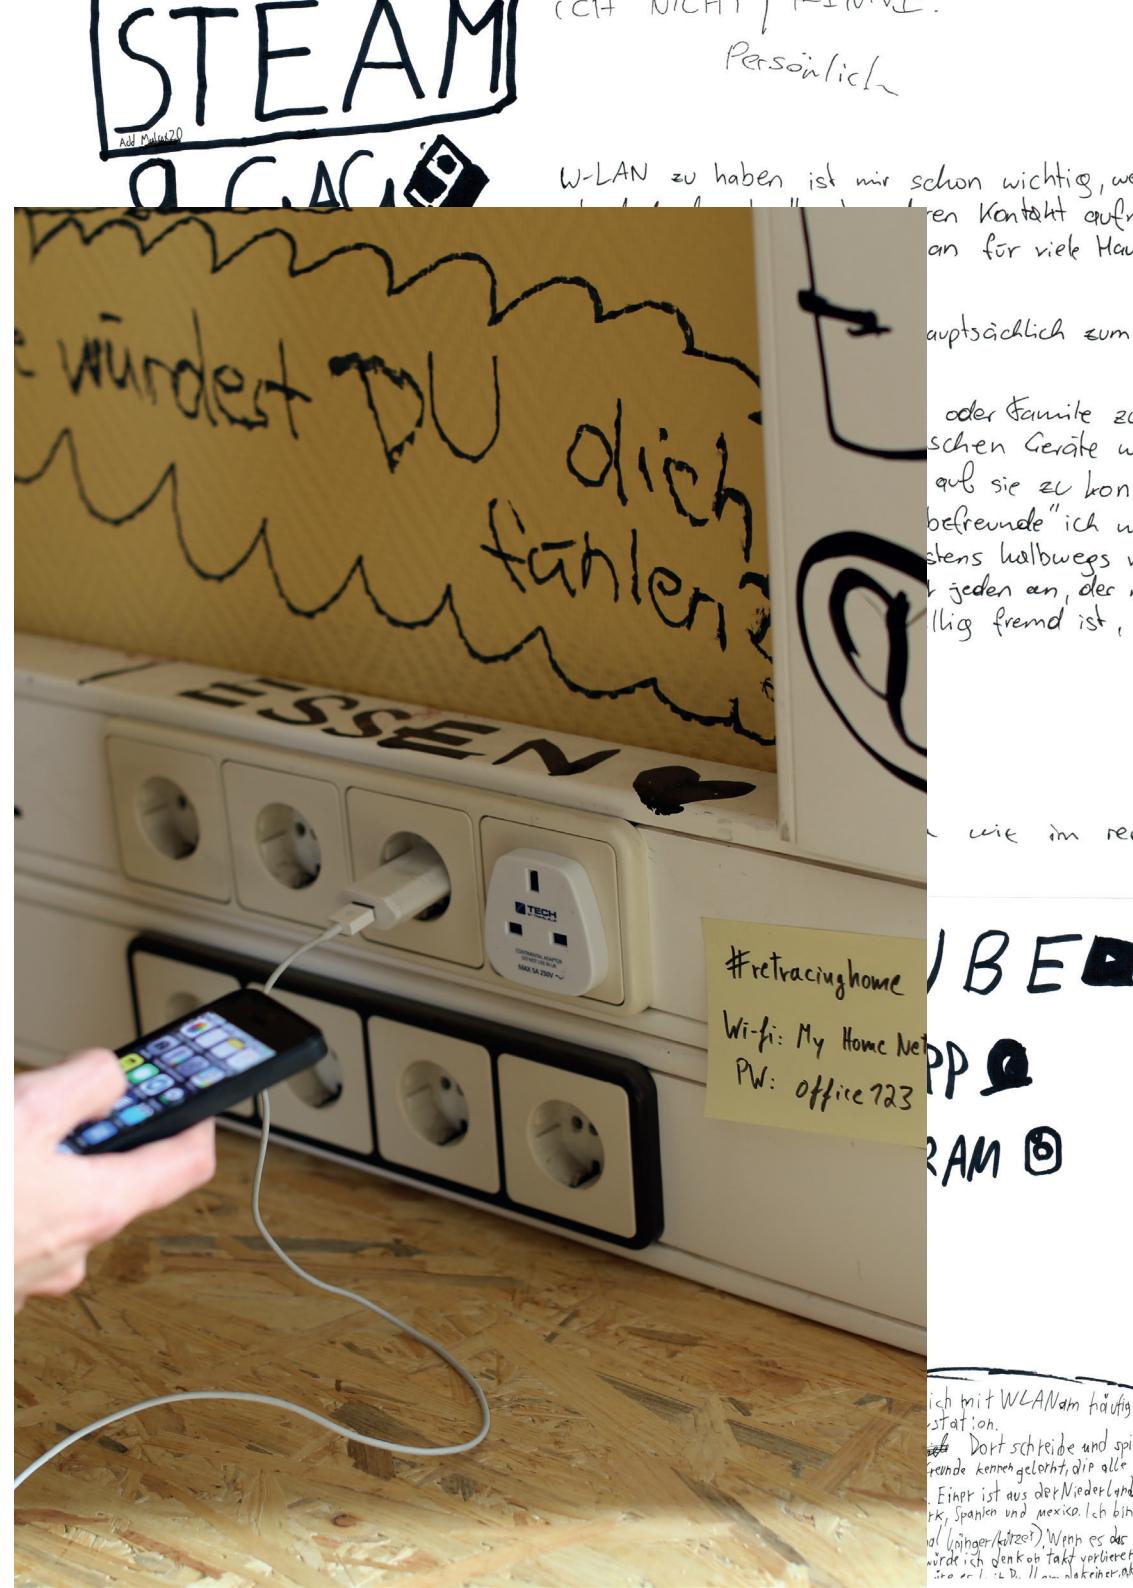 STEAM
Add
9GAG
ICH NICHT
Persönlich
W-LAN zu haben ist mir schon wichtig, we
ren Kontakt aufr
an für viele Hau
auptsächlich zum
oder Familie zu
schen Geräte w
auf sie zu kon
befreunde" ich w
stens halbwegs v
jeden an, der
llig fremd ist,
e würdest DU dich
fühlen?
@
ESSEN
TECH
CONTINENTAL ADAPTOR
DO NOT USE IN UK
MAX 5A 250V ~
#retracinghome
Wi-fi: My Home Net
PW: office123
wie im ree
UBE
PP
RAM
ich mit WLAN am häufig
station.
Dort schreibe und spi
freunde kennengelernt, die alle
Einer ist aus der Niederland
rk, Spanien und mexico. Ich bin
al länger/kürzer). Wenn es das
würde ich den kontakt verlieren